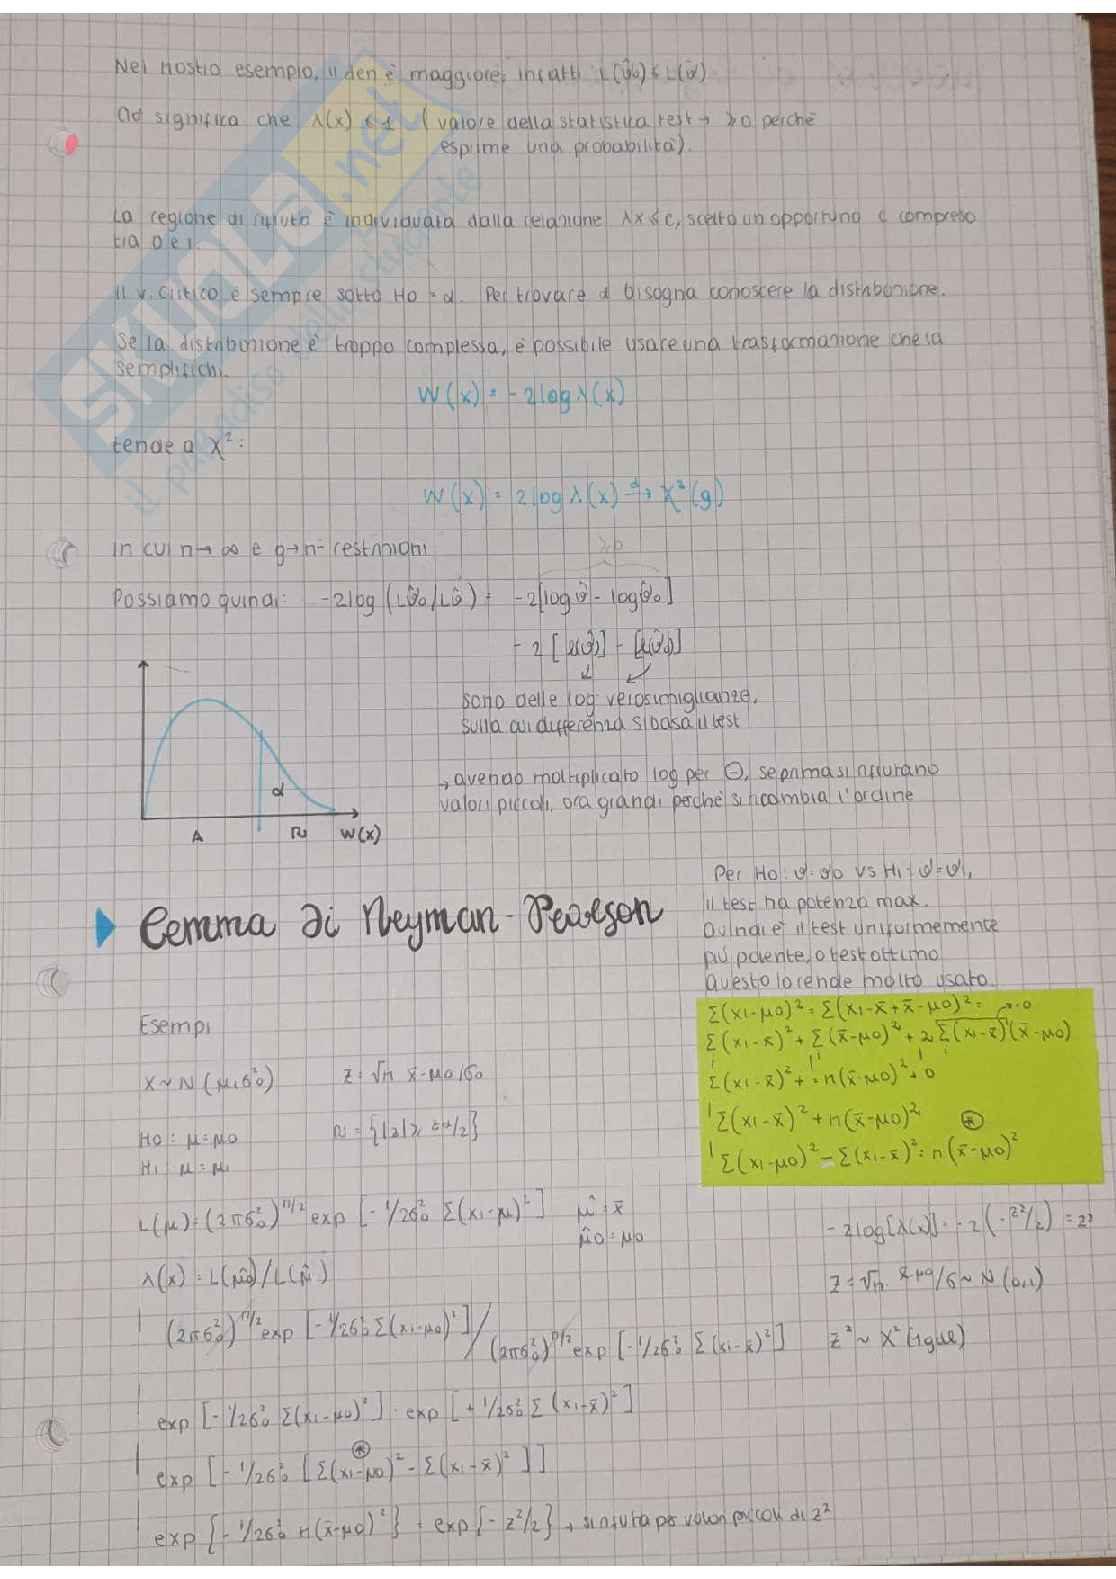 Nel nostro esempio, il den è maggiore, infatti L(θ̂0) ≤ L(θ̂)
Ciò significa che λ(x) ≤ 1 (valore della statistica test → ≥0 perché
esprime una probabilità).
La regione di rifiuto è individuata dalla relazione λx ≤ c, scelto un opportuno c compreso
tra 0 e 1.
Il v. critico è sempre sotto H0 = α. Per trovare α bisogna conoscere la distribuzione.
Se la distribuzione è troppo complessa, è possibile usare una trasformazione che la
semplifichi.
W(x) = -2log λ(x)
tende a χ²:
W(x) = 2log λ(x) →d χ²(g)
In cui n→∞ e g→n° restrizioni
≥0
Possiamo quindi: -2log (Lθ̂0/Lθ̂) = -2[logθ̂ - logθ̂0]
-2 [ℓ(θ̂)] - [ℓ(θ̂0)]
sono delle log verosimiglianze,
sulla cui differenza si basa il test
→ avendo moltiplicato log per ⊖, se prima si rifiutano
valori piccoli, ora grandi perché si ricambia l'ordine
α
A R W(x)
Per H0: θ=θ0 vs H1: θ=θ1,
il test ha potenza max.
Quindi è il test uniformemente
più potente, o test ottimo
Questo lo rende molto usato.
Lemma di Neyman-Pearson
Σ(xi-μ0)² = Σ(xi-x̄+x̄-μ0)² = → 0
Σ(xi-x̄)² + Σ(x̄-μ0)² + 2Σ(xi-x̄)(x̄-μ0)
Σ(xi-x̄)² + = n(x̄-μ0)² + 0
Σ(xi-x̄)² + n(x̄-μ0)²
⊛
Σ(xi-μ0)² - Σ(xi-x̄)² = n(x̄-μ0)²
Esempi
X ~ N(μ, σ²0) z = √n x̄-μ0/σ0
H0: μ=μ0 R = {|z| ≥ zα/2}
H1: μ=μ1
L(μ) = (2πσ²0)^n/2 exp [-1/2σ²0 Σ(xi-μ)²] μ̂ = x̄
μ̂0 = μ0
-2log[λ(x)] = -2(-z²/2) = z²
λ(x) = L(μ̂0)/L(μ̂)
z = √n x̄-μ0/σ ~ N(0,1)
(2πσ²0)^n/2 exp [-1/2σ²0 Σ(xi-μ0)²] / (2πσ²0)^n/2 exp [-1/2σ²0 Σ(xi-x̄)²]
z² ~ χ²(1gdl)
exp [-1/2σ²0 Σ(xi-μ0)²] · exp [+1/2σ²0 Σ(xi-x̄)²]
⊛
exp [-1/2σ²0 [Σ(xi-μ0)² - Σ(xi-x̄)²]]
exp {-1/2σ²0 n(x̄-μ0)²} = exp {-z²/2} → si rifiuta per valori piccoli di z²
SKUOLA.net
il paradiso dello studente